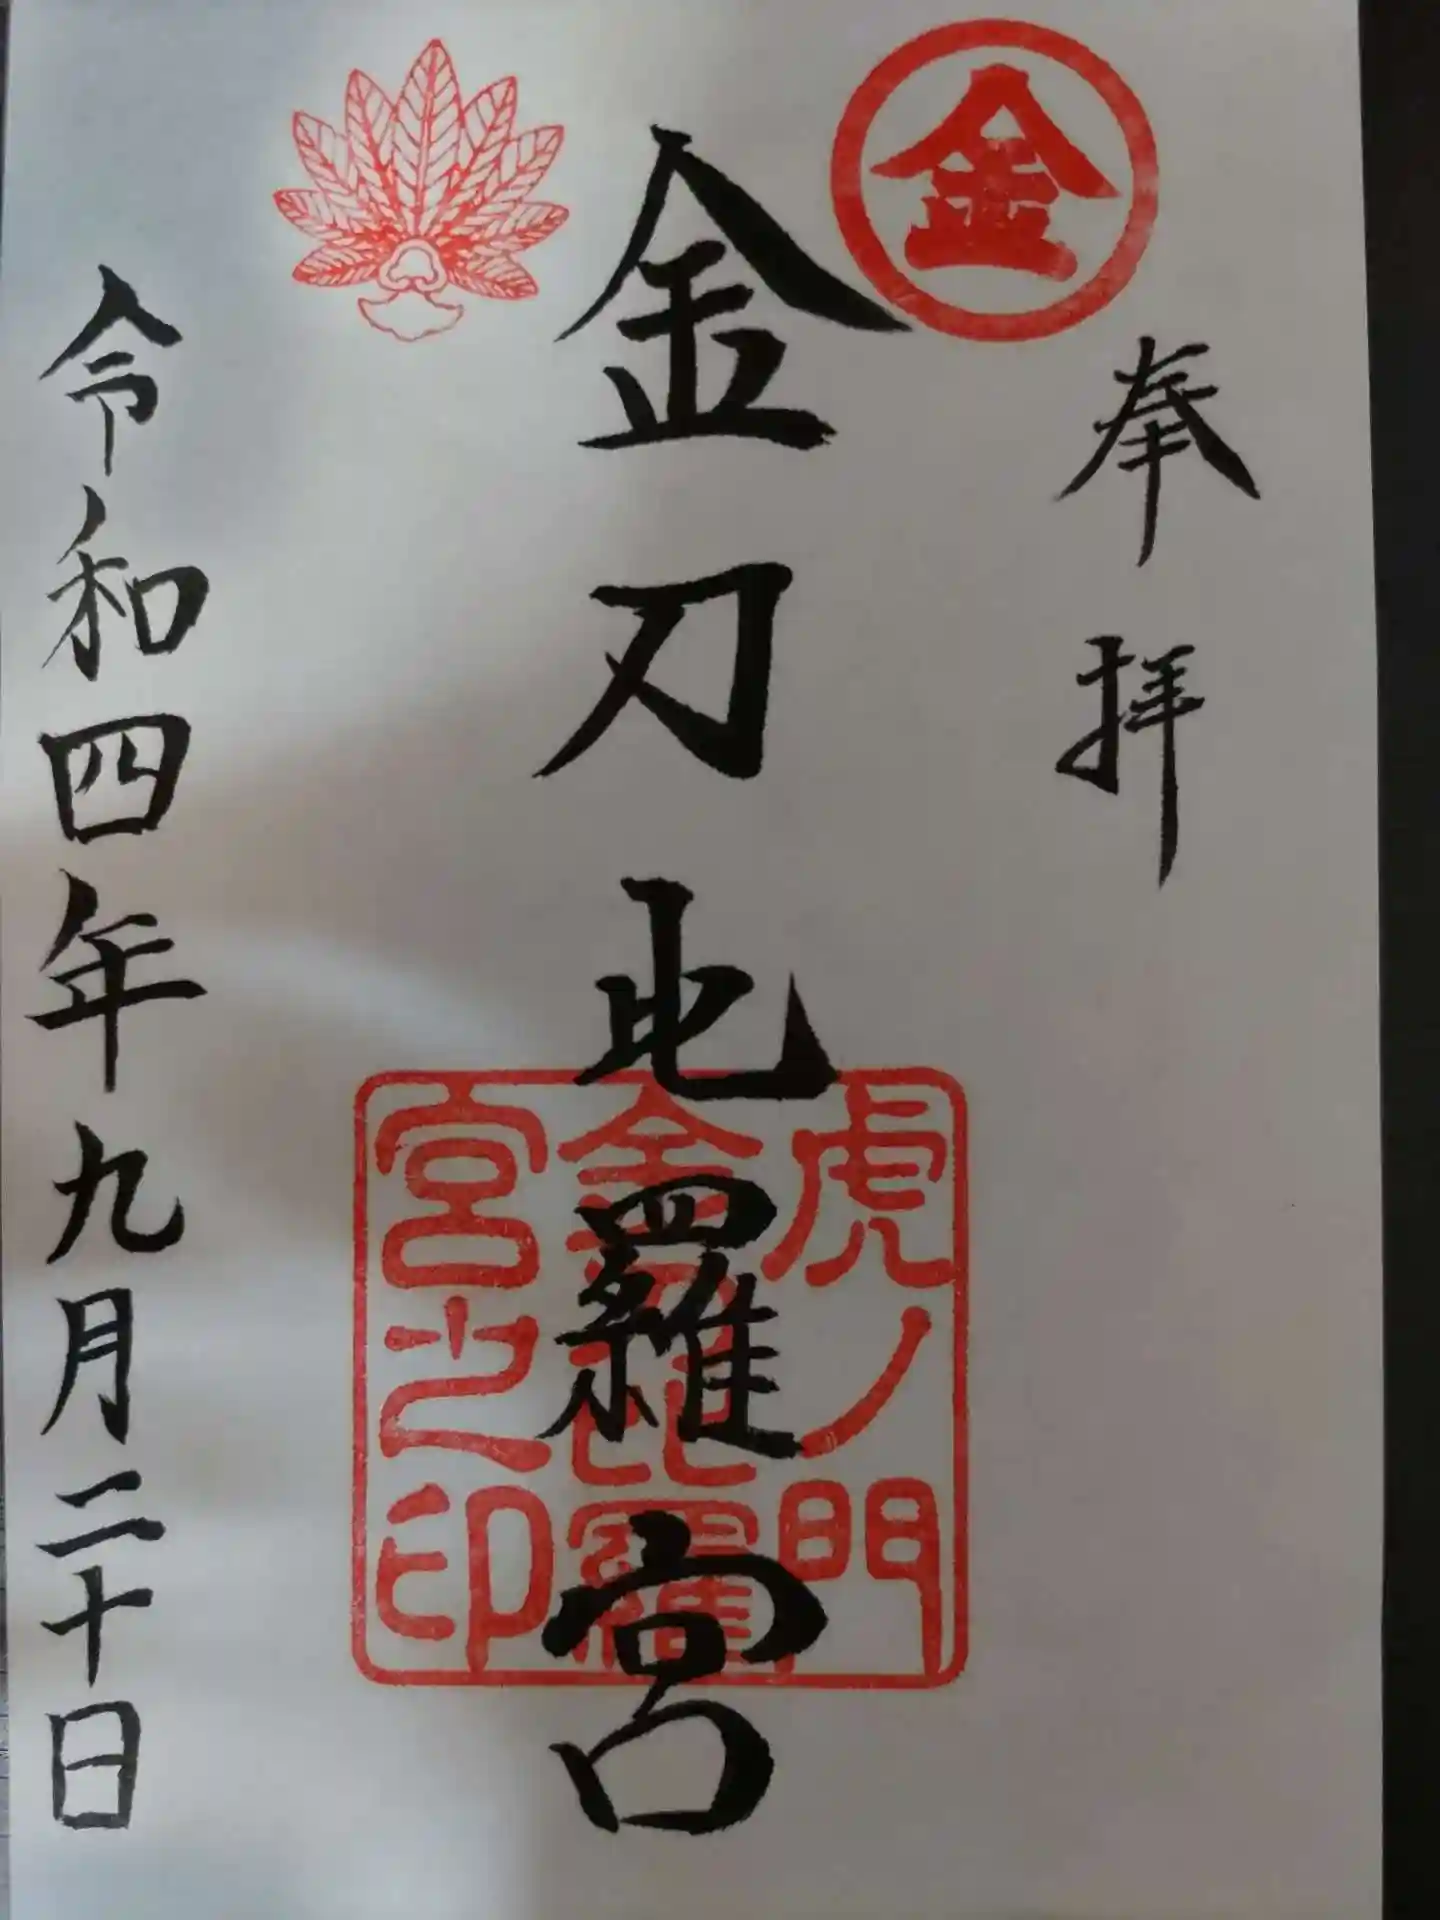 金
奉拝
金刀比羅宮
虎ノ門
金刀比羅
宮之印
令和四年九月二十日